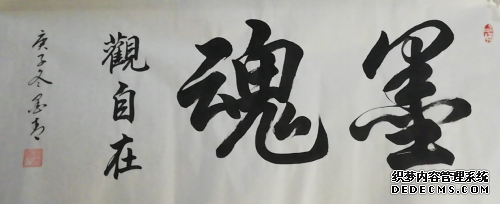 墨魂
觀自在
庚子冬墨青
织梦内容管理系统
DEDECMS.COM